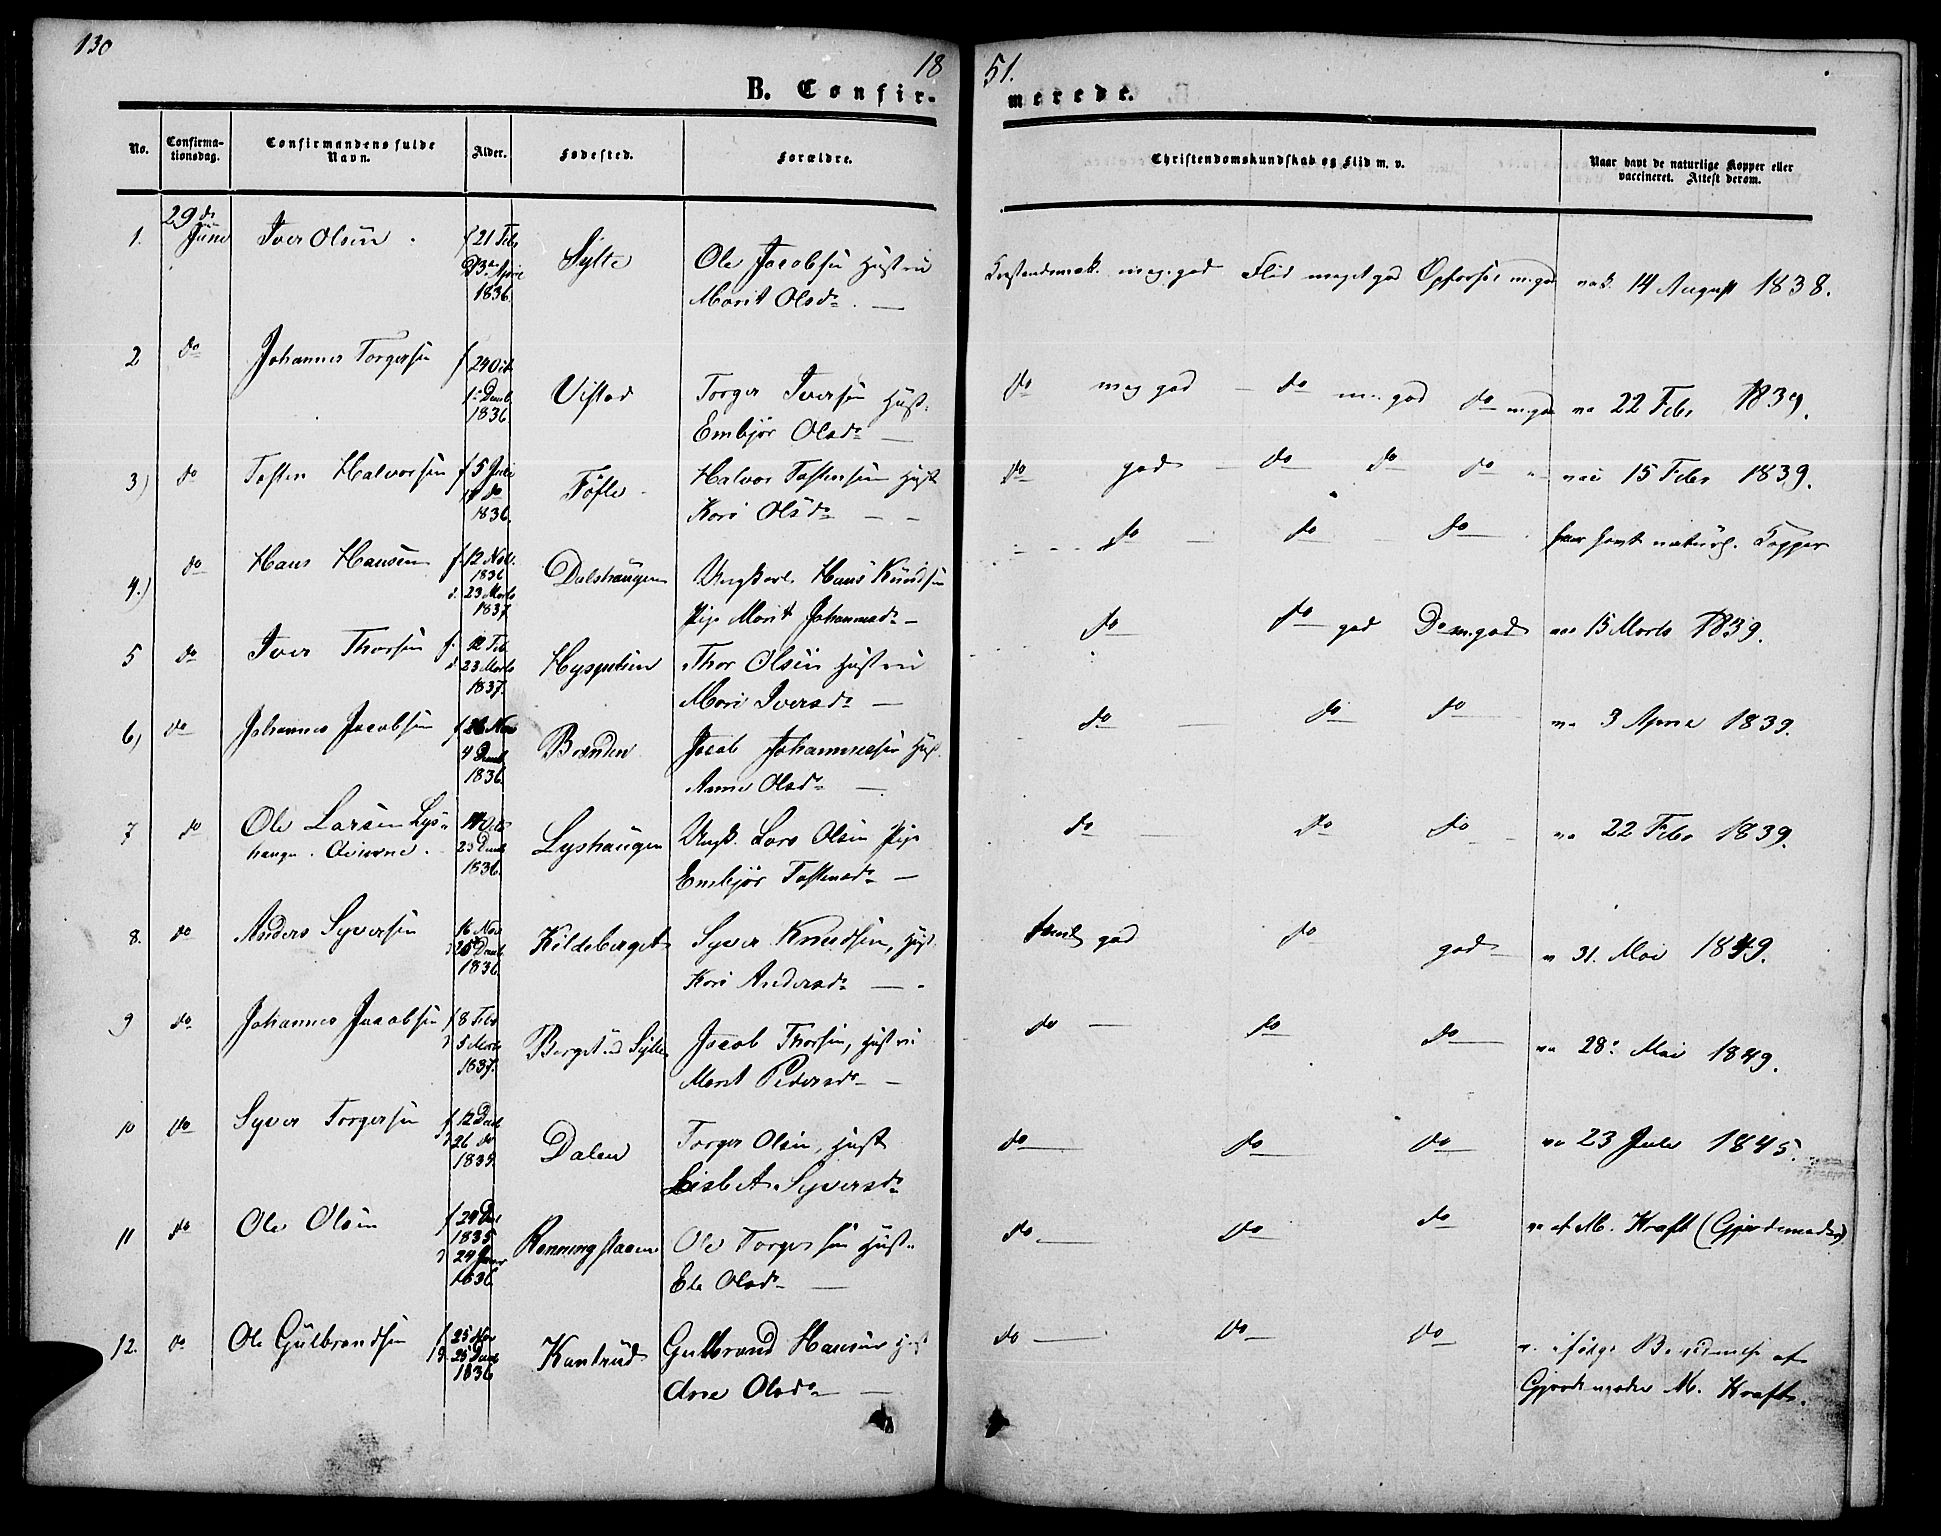 130
18 51.
B. Confirmerede.
No. Confirmationsdag. Confirmandens fulde Navn. Alder. Fødested. Forældre. Christendomskundskab og Flid m. v. Naar havt de naturlige Kopper eller vaccineret. Attest derom.
1. 29de Juni Iver Olsen f 21 Feb d 3 April 1836. Sylte Ole Jacobsen Hustru
Marit Olsd. Kristendomsk. meg. god Flid meget god Opførsel m. god vac. 14 August 1838.
2 do Johannes Torgersen f 24 Oct 1 Decb 1836 Vistad Torger Iversen Hust.
Embjør Olsd. do meg god do m. god do m. god va 22 Febr 1839.
3) do Tosten Halvorsen f 5 Juli 17 do 1836. Föfle Halvor Tostensen Hust
Kari Olsd. do god do do do vac 15 Febr 1839.
4.) do Hans Hansen f. 12 Nov. 1836 d. 23 Marts 1837 Dalshaugen Ungkarl Hans Knudsen
Pige Marit Johannesd. do do do har havt naturl. Kopper
5 do Iver Thorsen f. 12 Feb d. 23 Marts 1837. Thor Olsen Hustru
Mari Iversd. do do god Do m. god vac 15 Marts 1839.
6) do Johannes Jacobsen f 26 Nov 4 Decb 1836. Brænden Jacob Johannessen Hust.
Anne Olsd. do do do va 3 April 1839.
7 do Ole Larsen Lys-
haugen 14 Oct 23 Decb 1836. Lyshaugen Ungk. Lars Olsen Pige
Embjør Tostensd. do do do va 22 Febr 1839.
8. do Anders Syversen 16 Nov 26 Decb 1836. Kildeberget Syver Knudsen, Hust.
Kari Andersd. temlig god do god v 31. Mai 1849.
9 do Johannes Jacobsen f 8 Febr d 5 Marts 1837. Berget u Sylte Jacob Thorsen, Hustru
Marit Pedersd. do do do va 28 Mai 1849.
10 do Syver Torgersen f. 12 Decb d 26 do 1835. Dalen Torger Olsen, Hust
Lisbet Syversd. do do do va 23 Juli 1845.
11 do Ole Olsen f 24 Decb 1835 d 24 Januar 1836 Rønningstaaen Ole Torgersen Hust.
Eli Olsd. do do do va af M. Kraft (Gjordemoder)
12. do Ole Gulbrandsen f 25 Nov d. 25 Decb 1836 Kantrud Gulbrand Hansen Hust
Ane Olsd. do do do v. ifølge Bevidnelse af
Gjordemoder M. Kraft.